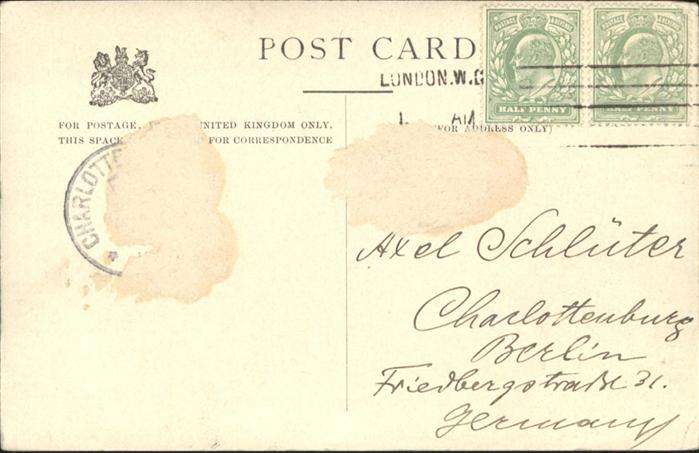 POST CARD
LONDON.W.C
AM
HALF PENNY
PENNY
FOR POSTAGE, UNITED KINGDOM ONLY,
THIS SPACE FOR CORRESPONDENCE
(FOR ADDRESS ONLY)
CHARLOTTE
Axel Schlüter
Charlottenburg
Berlin
Friedbergstraße 31.
Germany